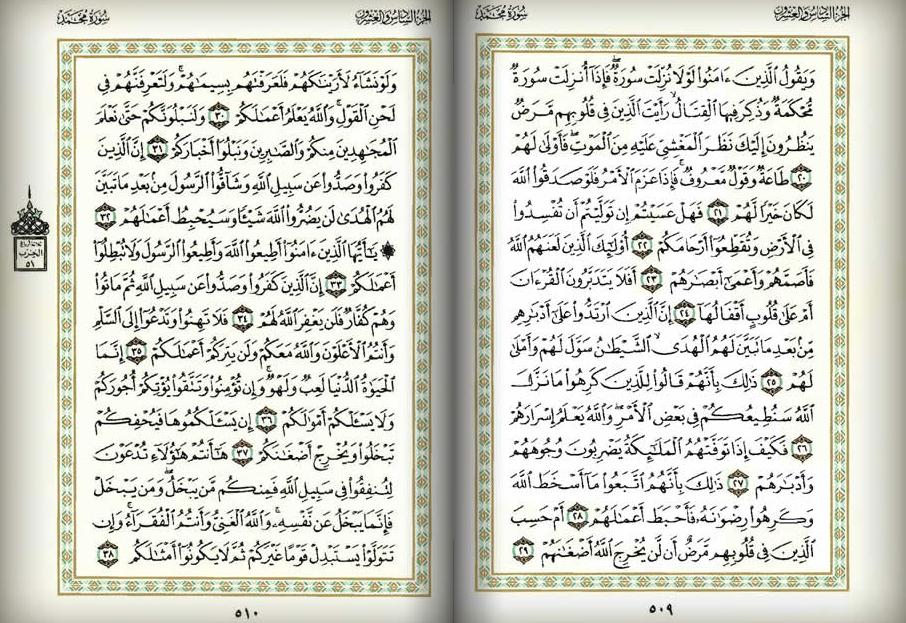 الجزء السادس والعشرون
سورة محمد
وَيَقُولُ الَّذِينَ ءَامَنُوا لَوْلَا نُزِّلَتْ سُورَةٌ ۖ فَإِذَا أُنزِلَتْ سُورَةٌ
مُّحْكَمَةٌ وَذُكِرَ فِيهَا الْقِتَالُ ۙ رَأَيْتَ الَّذِينَ فِي قُلُوبِهِم مَّرَضٌ
يَنظُرُونَ إِلَيْكَ نَظَرَ الْمَغْشِيِّ عَلَيْهِ مِنَ الْمَوْتِ ۖ فَأَوْلَىٰ لَهُمْ
٢٠ طَاعَةٌ وَقَوْلٌ مَّعْرُوفٌ ۚ فَإِذَا عَزَمَ الْأَمْرُ فَلَوْ صَدَقُوا اللَّهَ
لَكَانَ خَيْرًا لَّهُمْ ٢١ فَهَلْ عَسَيْتُمْ إِن تَوَلَّيْتُمْ أَن تُفْسِدُوا
فِي الْأَرْضِ وَتُقَطِّعُوا أَرْحَامَكُمْ ٢٢ أُولَٰئِكَ الَّذِينَ لَعَنَهُمُ اللَّهُ
فَأَصَمَّهُمْ وَأَعْمَىٰ أَبْصَارَهُمْ ٢٣ أَفَلَا يَتَدَبَّرُونَ الْقُرْءَانَ
أَمْ عَلَىٰ قُلُوبٍ أَقْفَالُهَا ٢٤ إِنَّ الَّذِينَ ارْتَدُّوا عَلَىٰ أَدْبَارِهِم
مِّن بَعْدِ مَا تَبَيَّنَ لَهُمُ الْهُدَى ۙ الشَّيْطَانُ سَوَّلَ لَهُمْ وَأَمْلَىٰ
لَهُمْ ٢٥ ذَٰلِكَ بِأَنَّهُمْ قَالُوا لِلَّذِينَ كَرِهُوا مَا نَزَّلَ
اللَّهُ سَنُطِيعُكُمْ فِي بَعْضِ الْأَمْرِ ۖ وَاللَّهُ يَعْلَمُ إِسْرَارَهُمْ
٢٦ فَكَيْفَ إِذَا تَوَفَّتْهُمُ الْمَلَائِكَةُ يَضْرِبُونَ وُجُوهَهُمْ
وَأَدْبَارَهُمْ ٢٧ ذَٰلِكَ بِأَنَّهُمُ اتَّبَعُوا مَا أَسْخَطَ اللَّهَ
وَكَرِهُوا رِضْوَانَهُ فَأَحْبَطَ أَعْمَالَهُمْ ٢٨ أَمْ حَسِبَ
الَّذِينَ فِي قُلُوبِهِم مَّرَضٌ أَن لَّن يُخْرِجَ اللَّهُ أَضْغَانَهُمْ ٢٩
٥٠٩
الجزء السادس والعشرون
سورة محمد
وَلَوْ نَشَاءُ لَأَرَيْنَاكَهُمْ فَلَعَرَفْتَهُم بِسِيمَاهُمْ ۚ وَلَتَعْرِفَنَّهُمْ فِي
لَحْنِ الْقَوْلِ ۚ وَاللَّهُ يَعْلَمُ أَعْمَالَكُمْ ٣٠ وَلَنَبْلُوَنَّكُمْ حَتَّىٰ نَعْلَمَ
الْمُجَاهِدِينَ مِنكُمْ وَالصَّابِرِينَ وَنَبْلُوَا أَخْبَارَكُمْ ٣١ إِنَّ الَّذِينَ
كَفَرُوا وَصَدُّوا عَن سَبِيلِ اللَّهِ وَشَاقُّوا الرَّسُولَ مِن بَعْدِ مَا تَبَيَّنَ
لَهُمُ الْهُدَىٰ لَن يَضُرُّوا اللَّهَ شَيْئًا وَسَيُحْبِطُ أَعْمَالَهُمْ ٣٢
۞ يَا أَيُّهَا الَّذِينَ ءَامَنُوا أَطِيعُوا اللَّهَ وَأَطِيعُوا الرَّسُولَ وَلَا تُبْطِلُوا
أَعْمَالَكُمْ ٣٣ إِنَّ الَّذِينَ كَفَرُوا وَصَدُّوا عَن سَبِيلِ اللَّهِ ثُمَّ مَاتُوا
وَهُمْ كُفَّارٌ فَلَن يَغْفِرَ اللَّهُ لَهُمْ ٣٤ فَلَا تَهِنُوا وَتَدْعُوا إِلَى السَّلْمِ
وَأَنتُمُ الْأَعْلَوْنَ وَاللَّهُ مَعَكُمْ وَلَن يَتِرَكُمْ أَعْمَالَكُمْ ٣٥ إِنَّمَا
الْحَيَاةُ الدُّنْيَا لَعِبٌ وَلَهْوٌ ۚ وَإِن تُؤْمِنُوا وَتَتَّقُوا يُؤْتِكُمْ أُجُورَكُمْ
وَلَا يَسْأَلْكُمْ أَمْوَالَكُمْ ٣٦ إِن يَسْأَلْكُمُوهَا فَيُحْفِكُمْ
تَبْخَلُوا وَيُخْرِجْ أَضْغَانَكُمْ ٣٧ هَا أَنتُمْ هَٰؤُلَاءِ تُدْعَوْنَ
لِتُنفِقُوا فِي سَبِيلِ اللَّهِ فَمِنكُم مَّن يَبْخَلُ ۖ وَمَن يَبْخَلْ
فَإِنَّمَا يَبْخَلُ عَن نَّفْسِهِ ۚ وَاللَّهُ الْغَنِيُّ وَأَنتُمُ الْفُقَرَاءُ ۚ وَإِن
تَتَوَلَّوْا يَسْتَبْدِلْ قَوْمًا غَيْرَكُمْ ثُمَّ لَا يَكُونُوا أَمْثَالَكُم ٣٨
الحزب
٥١
٥١٠